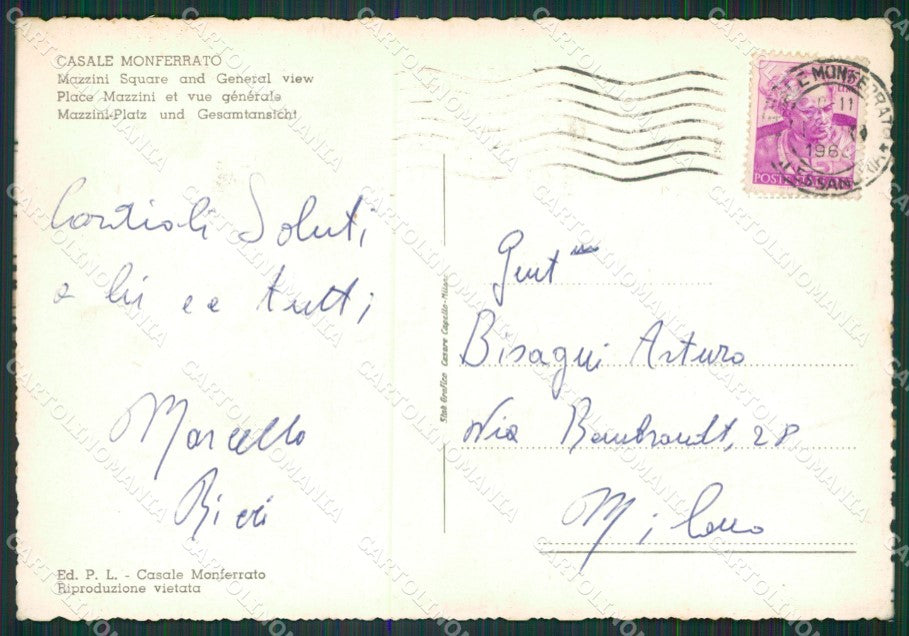 CASALE MONFERRATO
Mazzini Square and General view
Place Mazzini et vue générale
Mazzini-Platz und Gesamtansicht
Cordiali Saluti
a lei e a tutti
Marcello
Ed. P. L. - Casale Monferrato
Riproduzione vietata
Stab Grafico Cesare Capello-Milano
MONFERRATO
11
POSTE
Gent
Bisagni Arturo
Via Rembrandt, 28
Milano
CARTOLINOMANIA